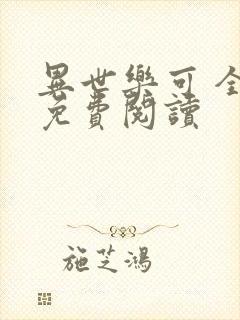 異世樂可 全
免費閱讀
施芝鴻